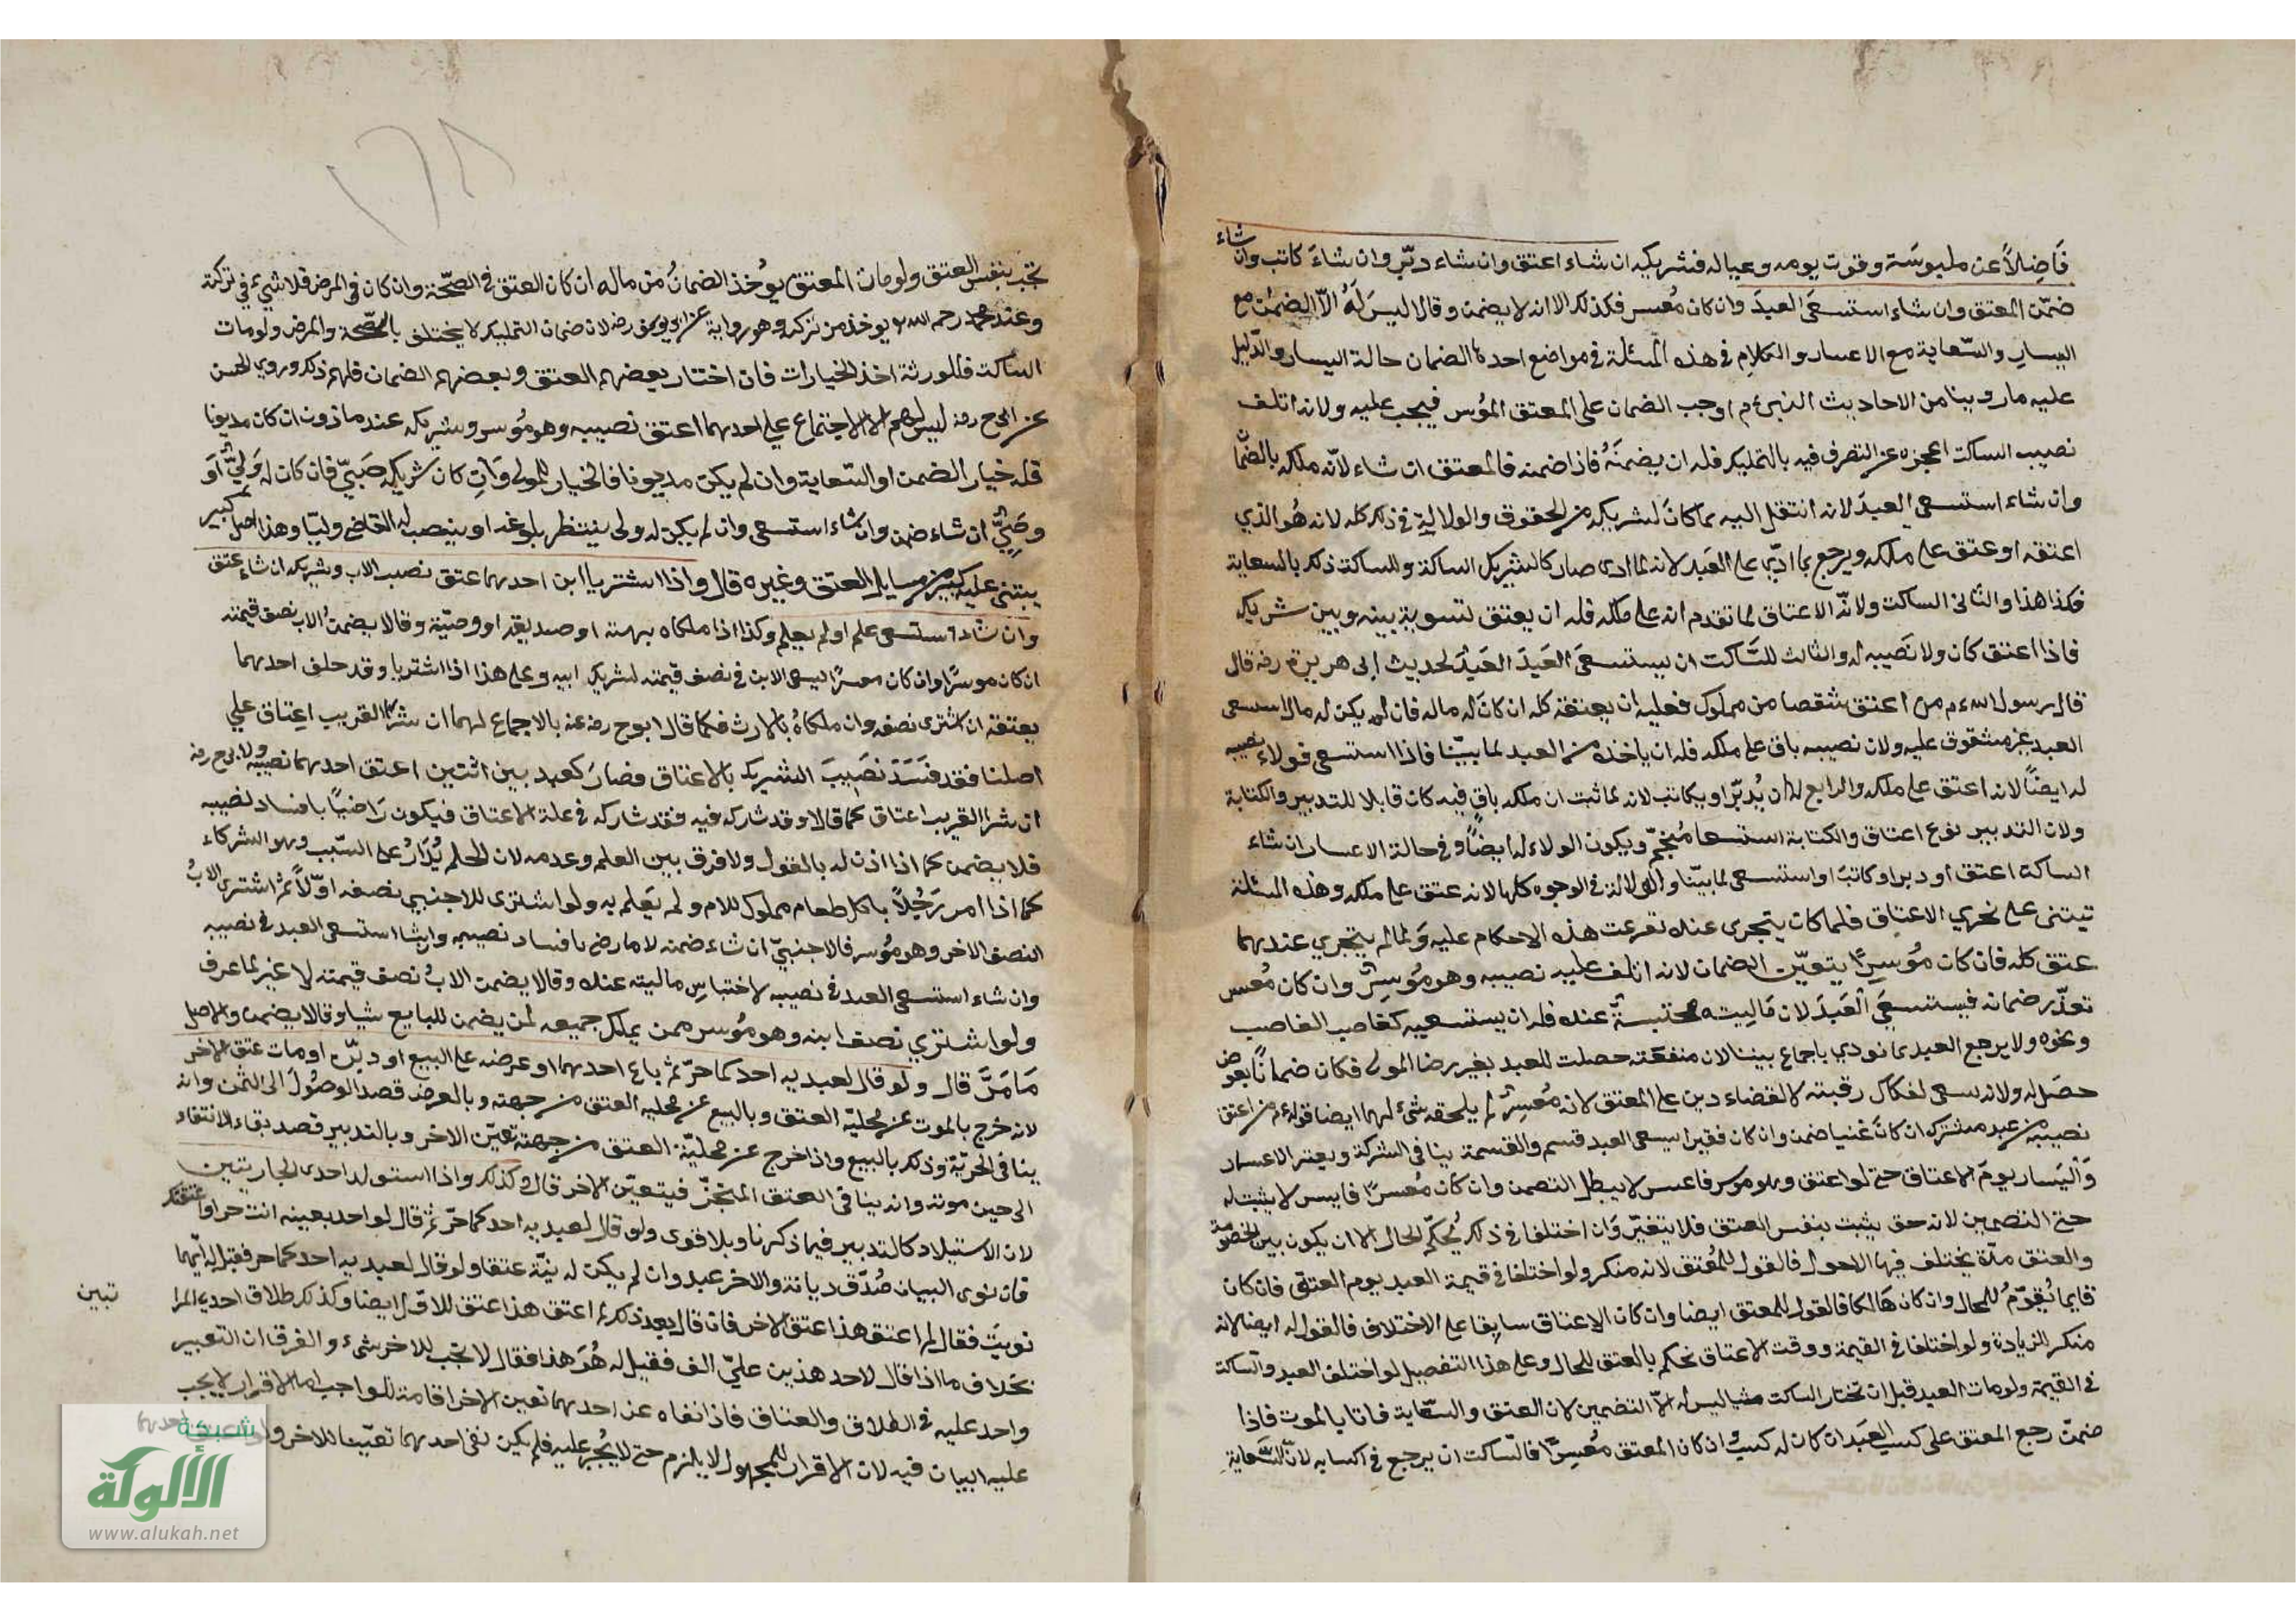 فَاضِلاً عن ملبوسَة وقوت يومه وعياله فشريكه ان شاء اعتق وان شاء دبّر وان شاءَ كاتب وان شاء
ضمّن المعتق وان شاء استسعَى العبدَ وان كان مُعسر فكذلك الا انه لا يضمن وقالا ليسَ لَهُ الاّ الضمان مع
اليسارِ والسّعاية مع الاعسار والكلام فى هذه المسئلة فى مواضع احدها الضمان حالة اليسار والدّليل
عليه ما روينا من الاحاديث النبىء م اوجب الضمان على المعتق المؤسر فيجب عليه ولانه اتلف
نصيب الساكت اعجزه عن التصرف فيه بالتمليك فله ان يضمنَهُ فاذا ضمنه فالمعتق ان شاء لانّه ملكه بالضمَّا
وان شاء استسعى العبدَ لانه انتقل اليه بما كانَ لشريكه من الحقوق والولاية فى ذلك كله لانه هُو الذي
اعتقه او عتق على ملكه ويرجع بما ادّي على العَبد لانه لما ادى صار كالشريك الساكت وللساكت ذلك بالسعاية
فكذا هذا والثانى الساكت ولانّه الاعتاق لما تقدم انه على ملكه فله ان يعتق لتسوية بينه وبين شريكه
فاذا اعتق كان ولا نَصيبه له والثالث للسَّاكت ان يستسعَى العَبدَ العَبدُ لحديث ابى هريرة رضه قال
قال رسول الله ءم من اعتق شقصا من مملوك فعليه ان يعتقه كله ان كانَ له ماله فان لم يكن له مال استسعى
العبد غير مشقوق عليه ولان نصيبه باق على ملكه فله ان ياخذه من العبد لما بيّنا فاذا استسعى فولاء نصيبه
له ايضاً لانه اعتق على ملكه والرابع له ان يُدبّر او يكاتب لانه لما ثبت ان ملكه باقٍ فيه كان قابلا للتدبير والكتابة
ولان التدبير نوع اعتاق والكتابة استسعا مُنجمّ ويكون الولاء له ايضاً وفى حالة الاعسار ان شاء
الساكت اعتق او دبر او كاتبَ او استسعى لما بيّنا والولالة فى الوجوه كلها لانه عتق على ملكه وهذه المسئلة
تبتنى على تجزي الاعتاق فلما كان يتجزى عنده تفرعت هذه الاحكام عليه وَلما لم يتجزي عندهما
عتق كله فان كان مُؤسِرًا يتعيّن الضمان لانه اتلف عليه نصيبه وهو مُؤسِرٌ وان كان مُعسر
تعذّر ضمانه فيستسعَي العَبدَ لان مَاليته محتبسةٌ عنده فله ان يستسعيه كغاصب الغاصب
ونحوه ولا يرجع العبد بما نودي باجماع بيننا لان منفعته حصلت للعبد بغير رضا المولى فكان ضمانًا بعوض
حصَل له ولانه سعى لفكاك رقبته لا لقضاء دين على المعتق لانه مُعسِرٌ لم يلحقه شيءٌ لهما ايضا قوله ءم من اعتق
نصيبه من عبد مشترك ان كانَ غنيا ضمن وان كان فقيرا يسعى العبد قسم والقسمة ينافى الشركة ويعتبر الاعسار
وَاليَسار يومَ الاعتاق حتى لو اعتق وهو موسر فاعسر لا يبطل التضمن وان كان مُعسرًا فايسر لا يثبت له
حتى التضمين لانه حق يثبت بنفس العتق فلا يتغيّر وَان اختلفا فى ذلك يُحكّم الحال الا ان يكون بين الخصومة
والعتق مدّة يختلف فيها الاحول فالقول للمُعتق لانه منكر ولو اختلفا فى قيمة العبد يوم العتق فان كان
قايما يُقوّمُ للحال وان كان هَالكا فالقول للمعتق ايضا وان كان الاعتاق سابقا على الاختلاف فالقول له ايضا لانه
منكر الزيادة ولو اختلفا فى القيمة ووقت الاعتاق نحكم بالعتق للحال وعلى هذا التفصيل لو اختلف العبد والساكت
فى القيمة ولو مات العبد قبل ان تختار الساكت شيا ليس له الاّ التضمين لان العتق والسعّاية فاتا بالموت فاذا
ضمّن رجع المعتق على كسب العَبد ان كان له كسب وان كان المعتق مُعسِرًا فالسّاكت ان يرجع فى اكسابه لانّ السّعاية
تجب بنفس العتق ولو مات المعتق يوُخذ الضمانُ من ماله ان كان العتق فى الصّحّة وان كان فى المرض فلا شيء في تركته
وعند محمد رحمه الله يوخذ من تركه وهو رواية عن ابو يوسف رضه لان ضمان التمليك لا يختلف بالصّحة والمرض ولو مات
الساكت فللورثة اخذ الخيارات فان اختار بعضهم العتق وبعضهم الضمان فلهم ذلك وروي الحسن
عن ابى ح رضه ليس لهم الا الاجتماع على احدهما اعتق نصيبه وهو مؤسر وشريكه عند ماذون ان كان مديونا
فله خيار الضمن او السّعاية وان لم يكن مديونا فالخيار للمولى وَان كان شريكه صَبيّ فان كان له وَليٌّ اوَ
وصَيٌّ ان شاء ضمن وان شاء استسعى وان لم يكن له ولى ينتظر بلوغه او ينصب له القاضي وليّا وهذا اصل كبير
يبتنى عليه كثير من مسايل العتق وغيره قال واذا اشتريا ابن احدهما عتق نصب الاب وشريكه ان شاء عتق
وان شاء استسعى علم او لم يعلم وكذا اذا ملكاه بهبة او صديقه او وصيّة وقالا يضمن الاب نصف قيمته
ان كان موسرًا وان كان معسرًا ليسعى الابن فى نصف قيمته لشريك ابيه وعلى هذا اذا اشتريا وقد حلف احدهما
بعتقه ان اشترى نصفه وان ملكاهُ بالارث فكما قال ابو ح رضه عنه بالاجماع لهما ان شرا القريب اعِتاق علي
اصلنا فقد فَسَدَ نصَيبَ الشريك بالاعتاق فصارَ كعبد بين اثنين اعتق احدهما نصيبه ولابى ح رضه
ان شرا القريب اعتاق كما قالا وقد شاركه فيه فقد شاركه فى علة الاعتاق فيكون رَاضيًا بافساد لضيبه
فلا يضمن كما اذا اذن له بالمقول ولا فرق بين العلم وعدمه لان الحلم يُدَارُ على السّبب وهو الشركاء
كما اذا امر رَجُلاً باكل طعام مملوك للام ولم يَعلم به ولو اشترى للاجنبي نصفه اوّلاً ثم اشترى الابُ
النصف الاخر وهو مؤسر فالاجنبيّ ان شاء ضمنه لاما رضى بافساد نصيبه وانشا استسعى العبد فى نصيبه
وان شاء استسعى العبد فى نصيبه لاختباسِ ماليته عنده وقالا يضمن الابُ نصف قيمته لا غير لما عرف
ولو اشترى نصف ابنه وهو مؤسر ممن يملك جميعه لمن يضمن للبايع شيا وقالا يضمن والاصل
مَا مَرَّ قال ولو قال لعبديه احد كما حرّ ثم باع احدهما او عرضه على البيع او دبّره او مات عتق الاخر
لانه خرج بالموت عن مُحليّة العتق وبالبيع عن محليه العتق من جهته وبالعرض قصد الوصُولَ الى الثمن وانه
ينافى الحريّة وذلك بالبيع واذا خرج عن محليّة العتق من جهته تعيّن الاخر وبالتدبير قصد بقاء الانتفاء
الى حين موته وانه ينافى العتق المنجزّ فيتعيّن الاخر قال وكذلك واذا استولد احدى الجاريتين
لان الاستيلاد كالتدبير فيما ذكرنا وبلا قوى ولو قال لعبديه احد كما حرّ ثم قال لواحد بعينه انت حر او اعتقتك
فان نوى البيان صُدّق ديانة والاخر عبد وان لم يكن له نيّة عتقا ولو قال لعبديه احد كما حر فقيل له ايّهما
نويتَ فقال لم اعتق هذا عتق الاخر فان قال بعد ذلك لم اعتق هذا عتق للاوّل ايضا وكذلك طلاق احدى المرا
تبين
بخلاف ما اذا قال لاحد هذين عليّ الف فقيل له هُوَ هذا فقال لا تجب للاخر شيءٌ والفرق ان التعيير
واحد عليه فى الطلاق والعتاق فاذا نفاه عن احدهما تعين الاخر اقامة للواجب اما الاقرار لا يجب
عليه البيان فيه لان الاقرار للمجهول لا يلزم حتى لا يُجبر عليه فلم يكن نفى احدهما تعيّينا للاخر
شبكة
الألوكة
www.alukah.net